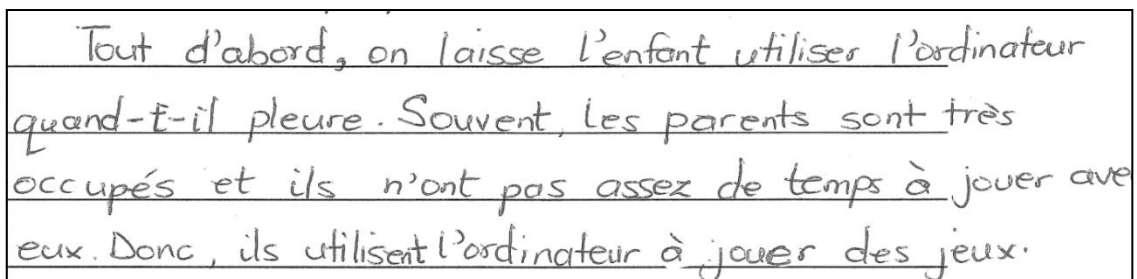 Tout d'abord, on laisse l'enfant utiliser l'ordinateur
quand-t-il pleure. Souvent, les parents sont très
occupés et ils n'ont pas assez de temps à jouer ave
eux. Donc, ils utilisent l'ordinateur à jouer des jeux.